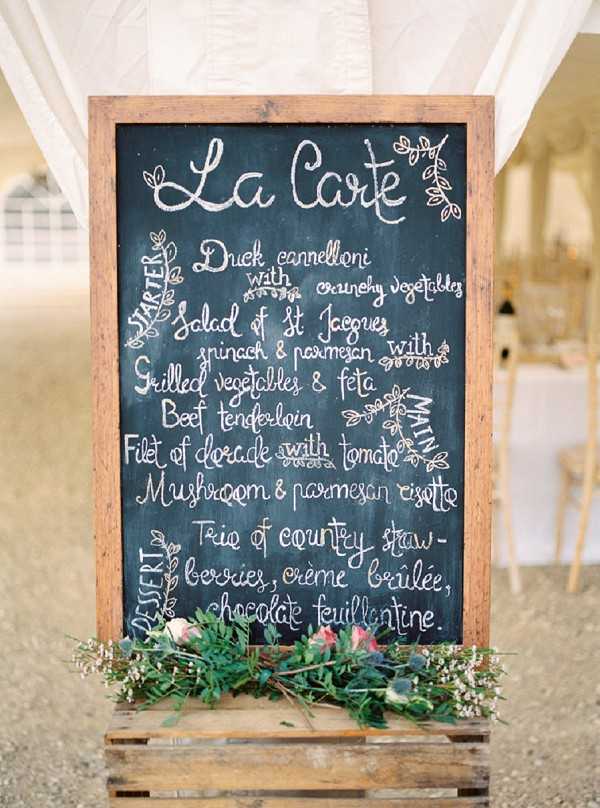 La Carte
STARTER
Duck cannelloni
with crunchy vegetables
Salad of St Jacques
spinach & parmesan with
Grilled vegetables & feta
MAIN
Beef tenderloin
Filet of dorade with tomato
Mushroom & parmesan risotto
DESSERT
Trio of country straw-
berries, crème brûlée,
chocolate feuillantine.